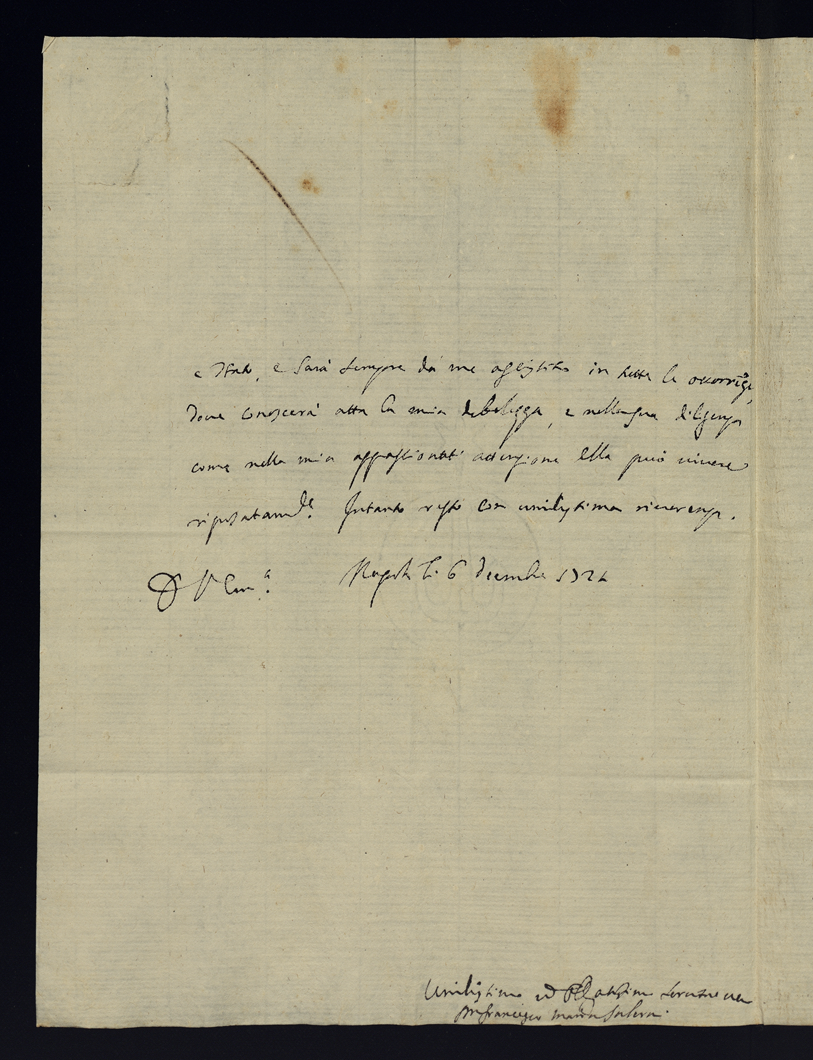 e stato, e sarà sempre da me assistito in tutte le
dove conoscerà atta la mia debolezza, e nella sua diligenza
come nella mia appassionata attenzione ella può vivere
riposatam.te Intanto resto con umilissima riverenza.
D V Em.a Napoli li 6 decembre
Umilissimo ed Servitore vero
Francesco Maria